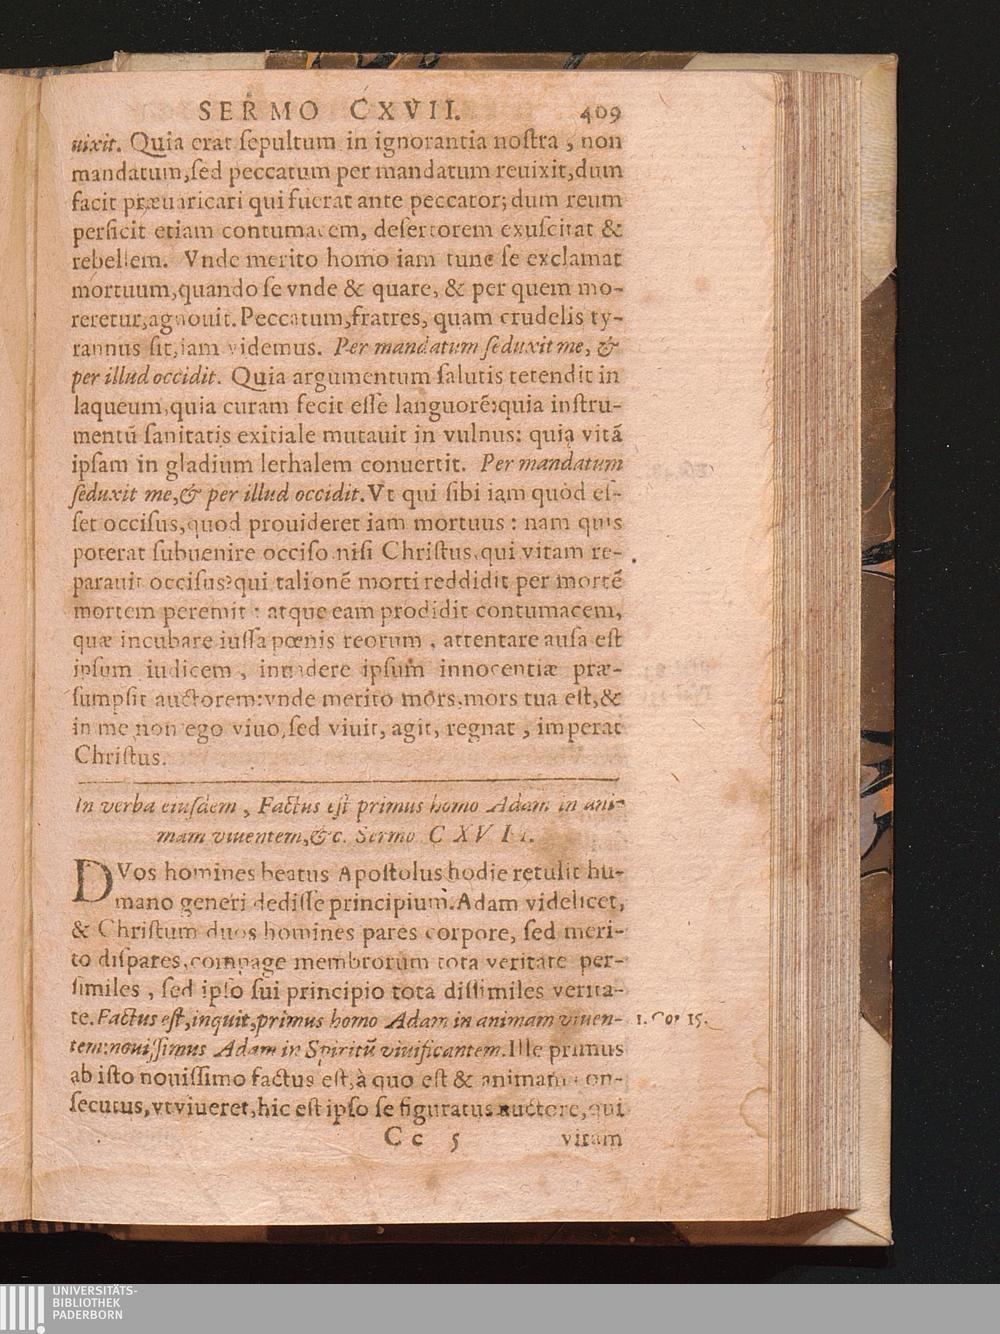 SERMO CXVII. 409
uixit. Quia erat sepultum in ignorantia nostra, non
mandatum, sed peccatum per mandatum reuixit, dum
facit præuaricari qui fuerat ante peccator; dum reum
perficit etiam contumacem, desertorem exuscitat &
rebellem. Vnde merito homo iam tunc se exclamat
mortuum, quando se vnde & quare, & per quem mo-
reretur, agnouit. Peccatum, fratres, quam crudelis ty-
rannus sit, iam videmus. Per mandatum seduxit me, &
per illud occidit. Quia argumentum salutis tetendit in
laqueum, quia curam fecit esse languorē: quia instru-
mentū sanitatis exitiale mutauit in vulnus: quia vitā
ipsam in gladium lethalem conuertit. Per mandatum
seduxit me, & per illud occidit. Vt qui sibi iam quòd es-
set occisus, quod prouideret iam mortuus: nam quis
poterat subuenire occiso nisi Christus, qui vitam re-
parauit occisus? qui talionē morti reddidit per mortē
mortem peremit: atque eam prodidit contumacem,
quæ incubare iussa pœnis reorum, attentare ausa est
ipsum iudicem, inuadere ipsum innocentiæ præ-
sumpsit auctorem: vnde merito mors, mors tua est, &
in me non ego viuo, sed viuit, agit, regnat, imperat
Christus.
In verba eiusdem, Factus est primus homo Adam in ani-
mam viuentem, &c. Sermo CXVII.
DVos homines beatus Apostolus hodie retulit hu-
mano generi dedisse principium. Adam videlicet,
& Christum duos homines pares corpore, sed meri-
to dispares, compage membrorum tota veritate per-
similes, sed ipso sui principio tota dissimiles verita-
te. Factus est, inquit, primus homo Adam in animam viuen- 1. Cor 15.
tem: nouissimus Adam in Spiritū viuificantem. Ille primus
ab isto nouissimo factus est, à quo est & animam con-
secutus, vt viueret, hic est ipso se figuratus auctore, qui
Cc 5 vitam
UNIVERSITÄTS-
BIBLIOTHEK
PADERBORN